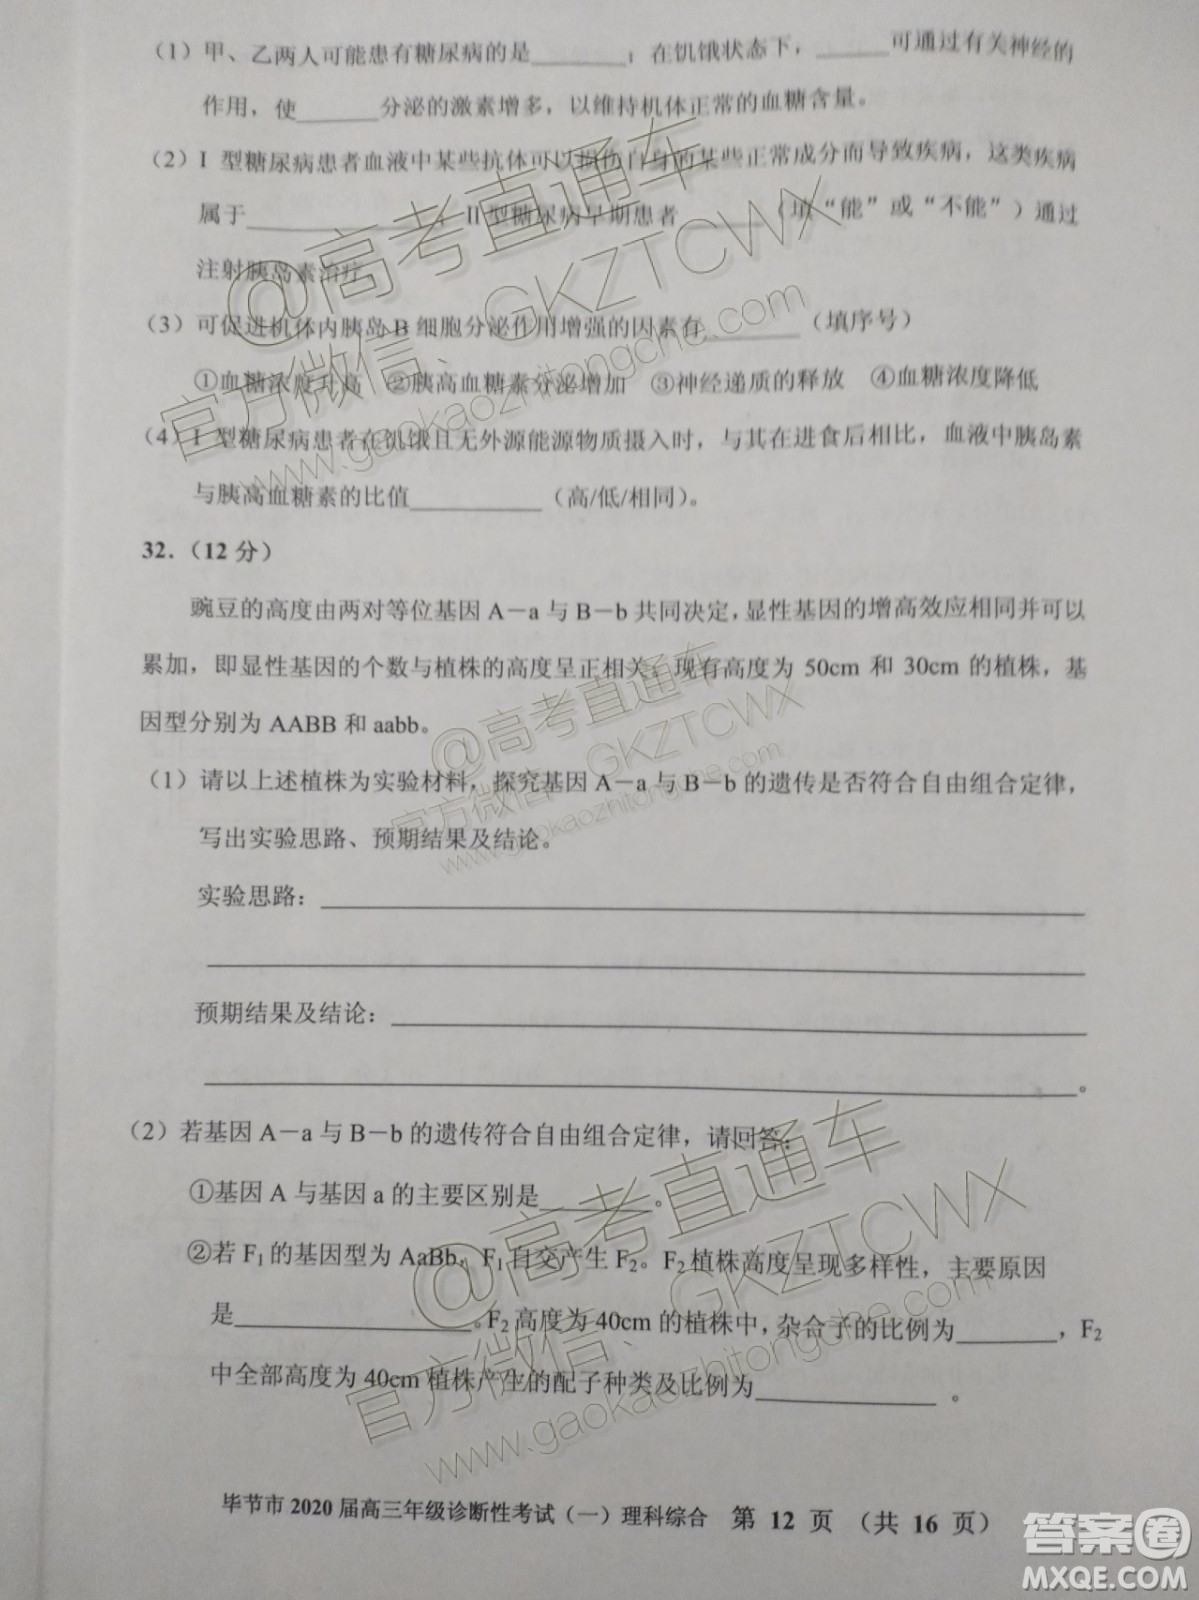 （1）甲、乙两人可能患有糖尿病的是________；在饥饿状态下，______可通过有关神经的
作用，使_______分泌的激素增多，以维持机体正常的血糖含量。
（2）I 型糖尿病患者血液中某些抗体可以损伤自身的某些正常成分而导致疾病，这类疾病
属于________________，II型糖尿病早期患者________（填“能”或“不能”）通过
注射胰岛素治疗
（3）可促进机体内胰岛 B 细胞分泌作用增强的因素有________（填序号）
①血糖浓度升高 ②胰高血糖素分泌增加 ③神经递质的释放 ④血糖浓度降低
（4）I 型糖尿病患者在饥饿且无外源能源物质摄入时，与其在进食后相比，血液中胰岛素
与胰高血糖素的比值___________（高/低/相同）。
32．（12 分）
豌豆的高度由两对等位基因 A－a 与 B－b 共同决定，显性基因的增高效应相同并可以
累加，即显性基因的个数与植株的高度呈正相关。现有高度为 50cm 和 30cm 的植株，基
因型分别为 AABB 和 aabb。
（1）请以上述植株为实验材料，探究基因 A－a 与 B－b 的遗传是否符合自由组合定律，
写出实验思路、预期结果及结论。
实验思路：________________
预期结果及结论：________________
________________。
（2）若基因 A－a 与 B－b 的遗传符合自由组合定律，请回答：
①基因 A 与基因 a 的主要区别是________。
②若 F1 的基因型为 AaBb，F1 自交产生 F2。F2 植株高度呈现多样性，主要原因
是________________。F2 高度为 40cm 的植株中，杂合子的比例为________，F2
中全部高度为 40cm 植株产生的配子种类及比例为______________。
毕节市 2020 届高三年级诊断性考试（一）理科综合 第 12 页 （共 16 页）
@高考直通车
官方微信：GKZTCWX
www.gaokaozhitongche.com
@高考直通车
官方微信：GKZTCWX
www.gaokaozhitongche.com
@高考直通车
官方微信：GKZTCWX
www.gaokaozhitongche.com
答案圈
MXQE.COM